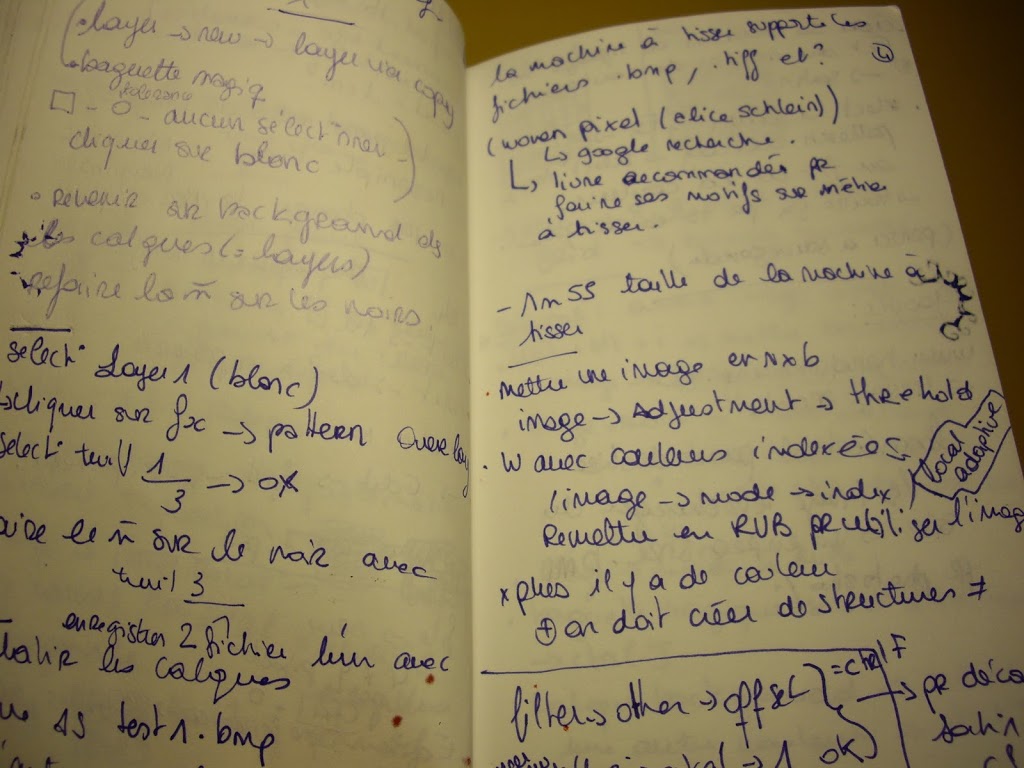 (. layer → new → layer via copy
. baguette magiq
tolerance
□ - 0 - aucun sélectionner -
cliquer sur blanc
. revenir sur background ds
les calques (= layers)
refaire la m̃ sur les noirs.
select° Layer 1 (blanc)
→ cliquer sur fx → pattern Overlay
select° twill 1/3 → OK
aire le m̃ sur le noir avec
twill 3
enregistrer 2 fichier
les calques
test 1.bmp
la machine à tisser supporte les
fichiers .bmp, .tiff et ? 4
(woven pixel (alice schlein))
↳ google recherche.
↳ livre recommandés pr
faire ses motifs sur métier
à tisser.
- 1m55 taille de la machine à
tisser
. mettre une image en N x b
image → Adjustment → threhold
. W avec couleurs indexées
local adaptive
(image → mode → index)
Remettre en RVB pr utiliser l'imag
x plus il y a de couleur
⊕ on doit créer de structures ≠
filter → other → offset } = ctrl F
→ pr déco
→ 1 OK
satin